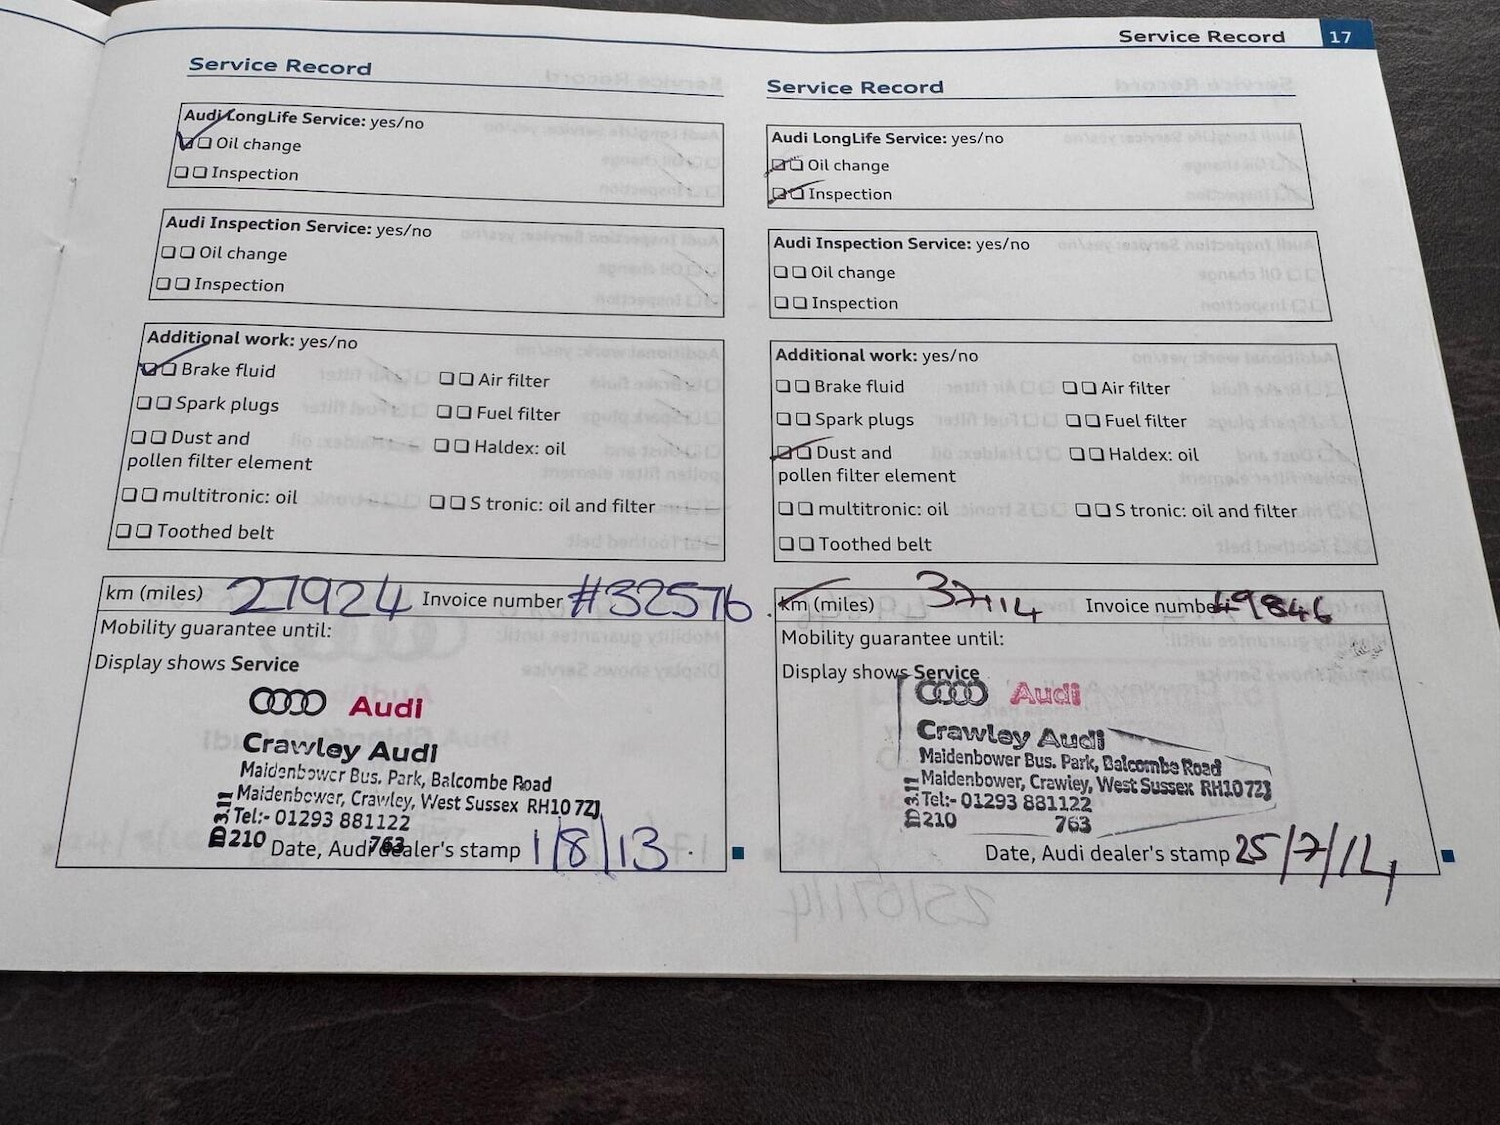 Service Record 17
Service Record
Audi LongLife Service: yes/no
❏❏ Oil change
❏❏ Inspection
Audi Inspection Service: yes/no
❏❏ Oil change
❏❏ Inspection
Additional work: yes/no
❏❏ Brake fluid ❏❏ Air filter
❏❏ Spark plugs ❏❏ Fuel filter
❏❏ Dust and ❏❏ Haldex: oil
pollen filter element
❏❏ multitronic: oil ❏❏ S tronic: oil and filter
❏❏ Toothed belt
km (miles) 27924 Invoice number #32576
Mobility guarantee until:
Display shows Service
Audi
Crawley Audi
Maidenbower Bus. Park, Balcombe Road
Maidenbower, Crawley, West Sussex RH10 7ZJ
Tel:- 01293 881122
210 763
Date, Audi dealer's stamp 1/8/13
Service Record
Audi LongLife Service: yes/no
❏❏ Oil change
❏❏ Inspection
Audi Inspection Service: yes/no
❏❏ Oil change
❏❏ Inspection
Additional work: yes/no
❏❏ Brake fluid ❏❏ Air filter
❏❏ Spark plugs ❏❏ Fuel filter
❏❏ Dust and ❏❏ Haldex: oil
pollen filter element
❏❏ multitronic: oil ❏❏ S tronic: oil and filter
❏❏ Toothed belt
km (miles) 37114 Invoice number 49846
Mobility guarantee until:
Display shows Service
Audi
Crawley Audi
Maidenbower Bus. Park, Balcombe Road
Maidenbower, Crawley, West Sussex RH10 7ZJ
Tel:- 01293 881122
210 763
Date, Audi dealer's stamp 25/7/14